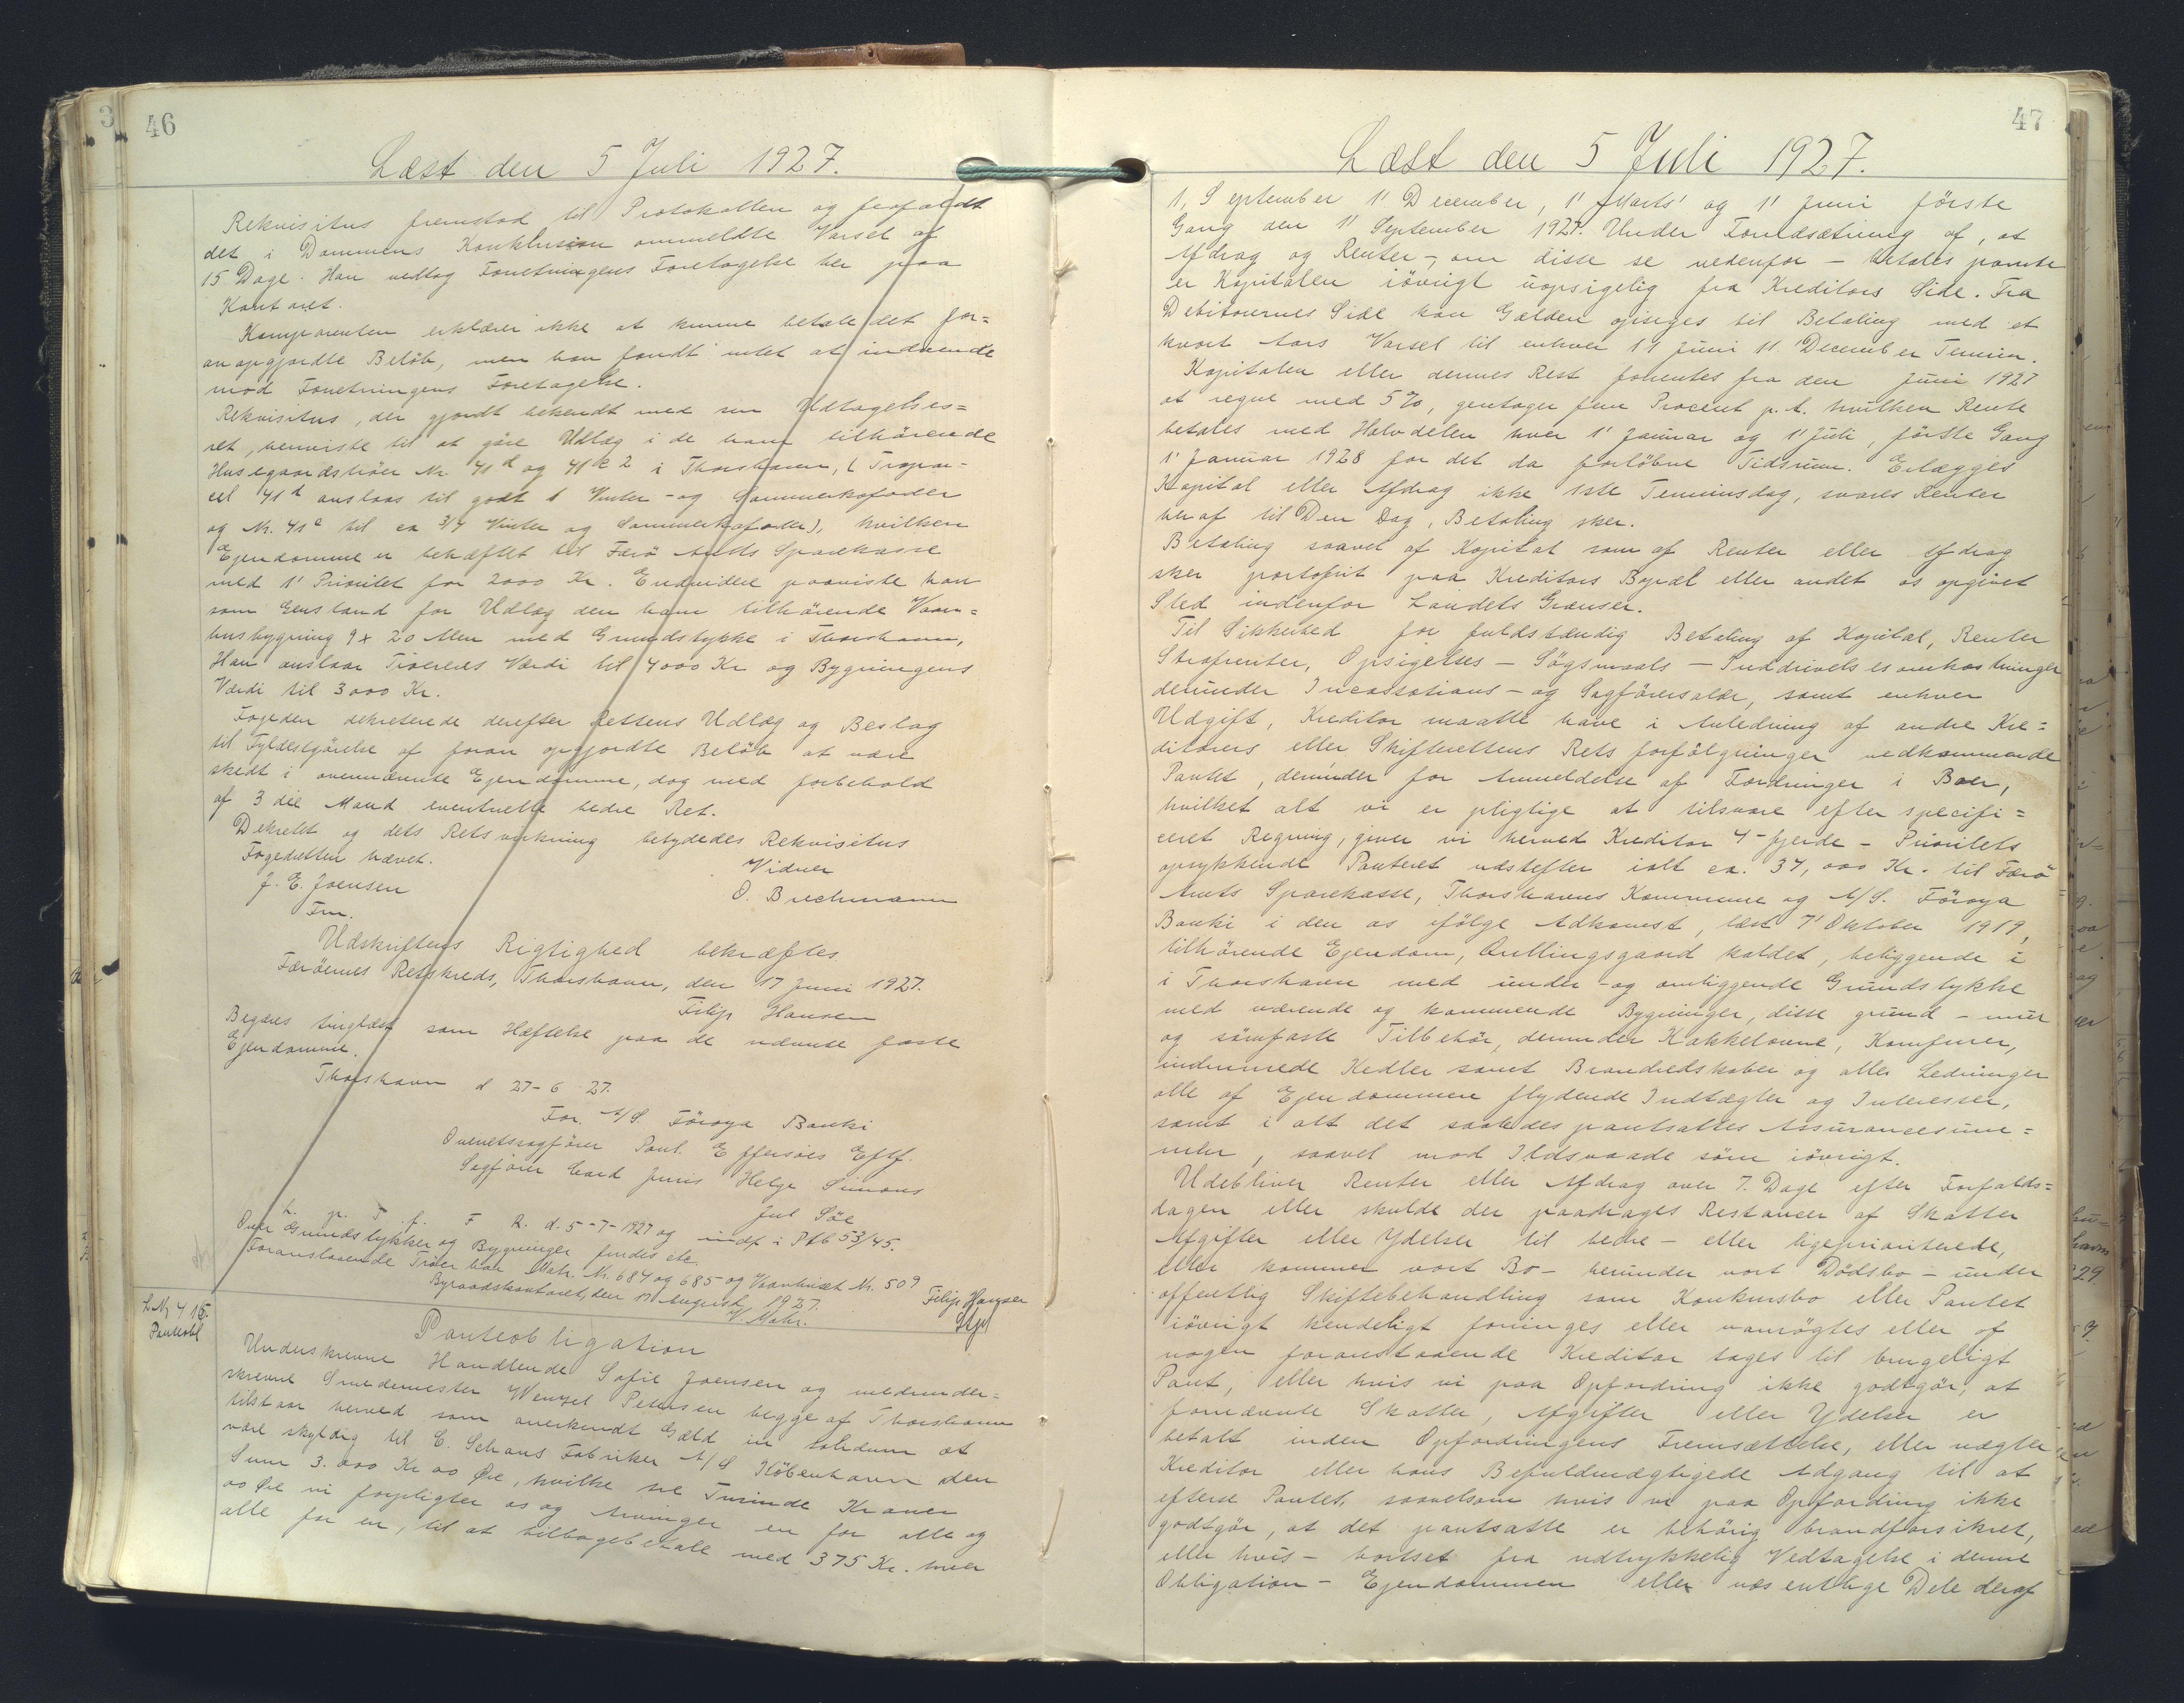 46
Læst den 5 Juli 1927.
Rekvisitus fremstod til Protokollen og frafaldt
det i Dommens Konklusion ommeldte Varsel af
15 Dage. Han vedtog Forretningens Foretagelse her paa
Kontoret.
Komparenten erklærer ikke at kunne betale det for=
an opgjordte Beløb, men han fandt intet at indvende
mod Forretningens Foretagelse.
Rekvisitus, der gjordt bekendt med sin Udtagelses=
ret, henviste til at gøre Udlæg i de ham tilhørende
Husegaardstrøer Nr. 41d og 41k 2 i Thorshavn, (
41d anslaas til godt 1 Vinter- og Sommerkofoder
og Nr. 41e til ca 3/4 Vinter og Sommerkofoder), hvilken
Ejendomme er behæftet til Færø Amts Sparekasse
med 1' Prioritet for 2000 Kr. Endvidere paaviste han
som Genstand for Udlæg den ham tilhørende Vaan=
husbygning 9 x 20 Alen med Grundstykke i Thorshavn,
Han anslaar Trøernes Værdi til 4000 Kr og Bygningens
Værdi til 3000 Kr.
Fogeden dekreterede derefter Rettens Udlæg og Beslag
til Fyldestgørelse af foran opgjordte Beløb at være
skedt i ovennævnte Ejendomme, dog med forbehold
af 3 die Mand eventuelle bedre Ret.
Dekretet og dets Retsvirkning betydedes Rekvisitus
Fogedretten hævet.
Vidner
J. E. Joensen
O. Bruchmann
Fm.
Udskriftens Rigtighed bekræftes
Færøernes Retskreds, Thorshavn, den 17 Juni 1927.
Filip Hansen
Begæres tinglæst som Hæftelse paa de nævnte faste
Ejendomme.
Thorshavn d 27-6 27.
For A/S. Føroya Banki
Overretssagfører Poul. E ffersøes Eftf.
Sagfører Cand juris Helge Simons
Jul Søe
L. p. T. f. F R. d. 5-7-1927 og indf i Ptb 53/45.
Over Grundstykker og Bygninger findes etc.
Foranstaaende Trøer har Matr. Nr. 684 og 685 og Vaanhuset Nr. 509
Byraadskontoret, den 17 August 1927.
Filip Hansen
V. Mohr.
L. Nr 416.
Panteobl
Panteobligation
Underskrevne Handlende Sofie Joensen og medunder=
skrevne Smedemester Wenzel Petersen begge af Thorshavn
tilstaar herved som anerkendt Gæld in solidum at
være skyldig til C. Schous Fabriker A/S København den
Sum 3.000 Kr 00 Øre, hvilke tre Tusinde Kroner
00 Øre vi forpligter os og Arvinger en for alle og
alle for en, til at tilbagebetale med 375 Kr. hver
47
Læst den 5 Juli 1927.
1, September 1' December, 1' Marts' og 1' Juni første
Gang den 1' September 1927. Under Forudsætning af, at
Afdrag og Renter -, om disse se nedenfor - betales prompte
er Kapitalen iøvrigt uopsigelig fra Kreditors Side. Fra
Debitorernes Side kan Gælden opsiges til Betaling med et
kvart Aars Varsel til enhver 11 Juni 11. December Termin.
Kapitalen eller dennes Rest forrentes fra den Juni 1927
at regne med 5 %, gentager fem Procent p. A. hvilken Rente
betales med Halvdelen hver 1' Januar og 1' Juli, første Gang
1' Januar 1928 for det da forløbne Tidsrum. Erlægges
Kapital eller Afdrag ikke sidste Terminsdag, svares Renter
heraf til Den Dag, Betaling sker.
Betaling saavel af Kapital som af Renter eller Afdrag
sker portofrit paa Kreditors Bopæl eller andet os opgivet
Sted indenfor Landets Grænser.
Til Sikkerhed for fuldstændig Betaling af Kapital, Renter
Strafrenter, Opsigelses - Søgsmaals - Inddrivelsesomkostninger
derunder Incassations - og Sagførersalær, samt enhver
Udgift, Kreditor maatte have i Anledning af andre Kre=
ditorers eller Skifterettens Rets forfølgninger vedkommende
Pantet, derunder for Anmeldelse af Fordringer i Boer,
hvilket alt vi er pligtige at tilsvare efter specifi=
ceret Regning, giver vi herved Kreditor 4 - fjerde - Prioritets
oprykkende Panteret næstefter ialt ca. 34,000 Kr. til Færø
Amts Sparekasse, Thorshavns Kommune og A/S. Føroya
Banki i den os ifølge Adkomst, læst 7' Oktober 1919,
tilhørende Ejendom, Quillingsgaard kaldet, beliggende i
i Thorshavn med under - og omliggende Grundstykke
med værende og kommende Bygninger, disse grund - mur
og sømfaste Tilbehør, derunder Kakkelovne, Komfurer,
indmurede Kedler samt Brandredskaber og alle Ledninger
alle af Ejendommen flydende Indtægter og Interesser,
samt i alt det saaledes pantsattes Assurancesum=
mer, saavel mod Ildsvaade som iøvrigt.
Udebliver Renter eller Afdrag over 7. Dage efter Forfalds=
dagen eller skulde der paadrages Restancer af Skatter
Afgifter eller Ydelser til bedre - eller ligeprioriterede,
eller kommer vort Bo - herunder vort Dødsbo - under
offentlig Skiftebehandling som Konkursbo eller Pantet
iøvrigt kendeligt forringes eller vanrøgtes eller af
nogen foranstaaende Kreditor tages til brugeligt
Pant, eller hvis vi paa Opfordring ikke godtgør, at
fornævnte Skatter, Afgifter eller Ydelser er
betalt inden Opfordringens Fremsættelse, eller nægter
Kreditor eller hans Befuldmægtigede Adgang til at
efterse Pantet, saavelsom hvis vi paa Opfordring ikke
godtgør, at det pantsatte er behørig brandforsikret,
eller hvis - bortset fra udtrykkelig Vedtagelse i denne
Obligation - Ejendommen eller væsentlige Dele deraf